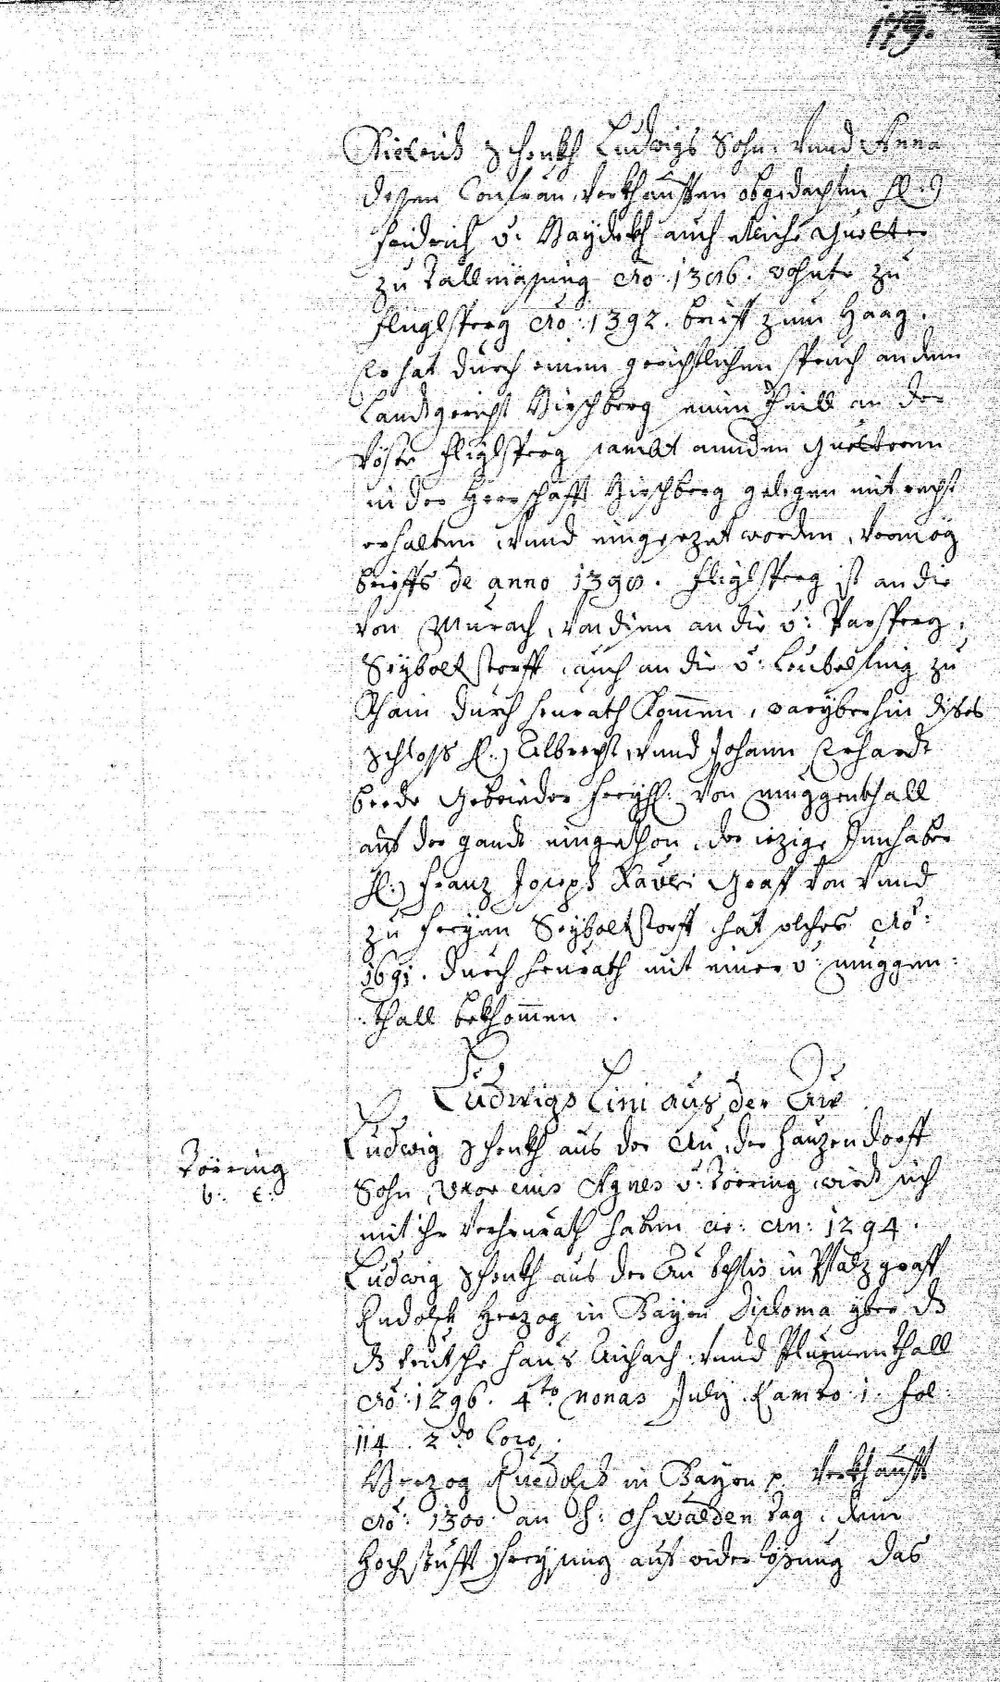 179.
Dietrich Schenkh Ludwigs Sohn, vnnd Anna
dessen Confrau, verkhauffen obgedachten H:
Heidrich v: Haydekh auch etliche Guetter
zu Tallmäsing Aõ: 1386. wohnte zu
Fluglsperg Aõ: 1392. brieff zum Haag.
Er hat durch einen gerichtlichen spruch an dem
Landtgericht Hirschberg einen theill an der
Vöste Fliglsperg sambt annden Guettern
in der Herrschafft Hirschberg gelegen mit recht
erhalten, vnnd eingesezet worden, vermög
brieffs de anno 1390. Fliglsperg ist an die
von Murach, von disen an die v: Parsperg,
Seyboltstorff, auch an die v: Leubelfing zu
Rhain durch heurath kommen, vorüberhin dises
Schloss H: Albrecht, vnnd Johann Erhardt
beede Gebrieder Freyh: von Muggenthall
auf der gandt eingethon, der iezige Innhaber
H: Franz Joseph Xaveri Graff von vnnd
zu Freyen Seyboltstorff hat solches Aõ:
1691. durch heurath mit einer v: Muggen:
:thall bekhommen.
Ludwigs Lini aus der Aw
Ludwig Schenkh aus der Au, der Hauzendorff
Töerring
v: C:
Sohn, vxor eius Agnes v: Töerring, wirdt sich
mit ihr verheurath haben ao: An: 1294.
Ludwig Schenkh aus der Au testis in Pfalzgraff
Rudolph Herzog in Bayrn Diploma yber dz
dz teutsche Haus Aichach, vnnd Pluementhall
Aõ: 1296. 4to nonas July. Tambo: 1. fol:
114. 2do Loco.
Herzog Ruedolph in Bayrn p. verkhaufft
Aõ: 1300. an S: Oswalden tag, dem
Hochstüfft Freysing auf widerlösung das